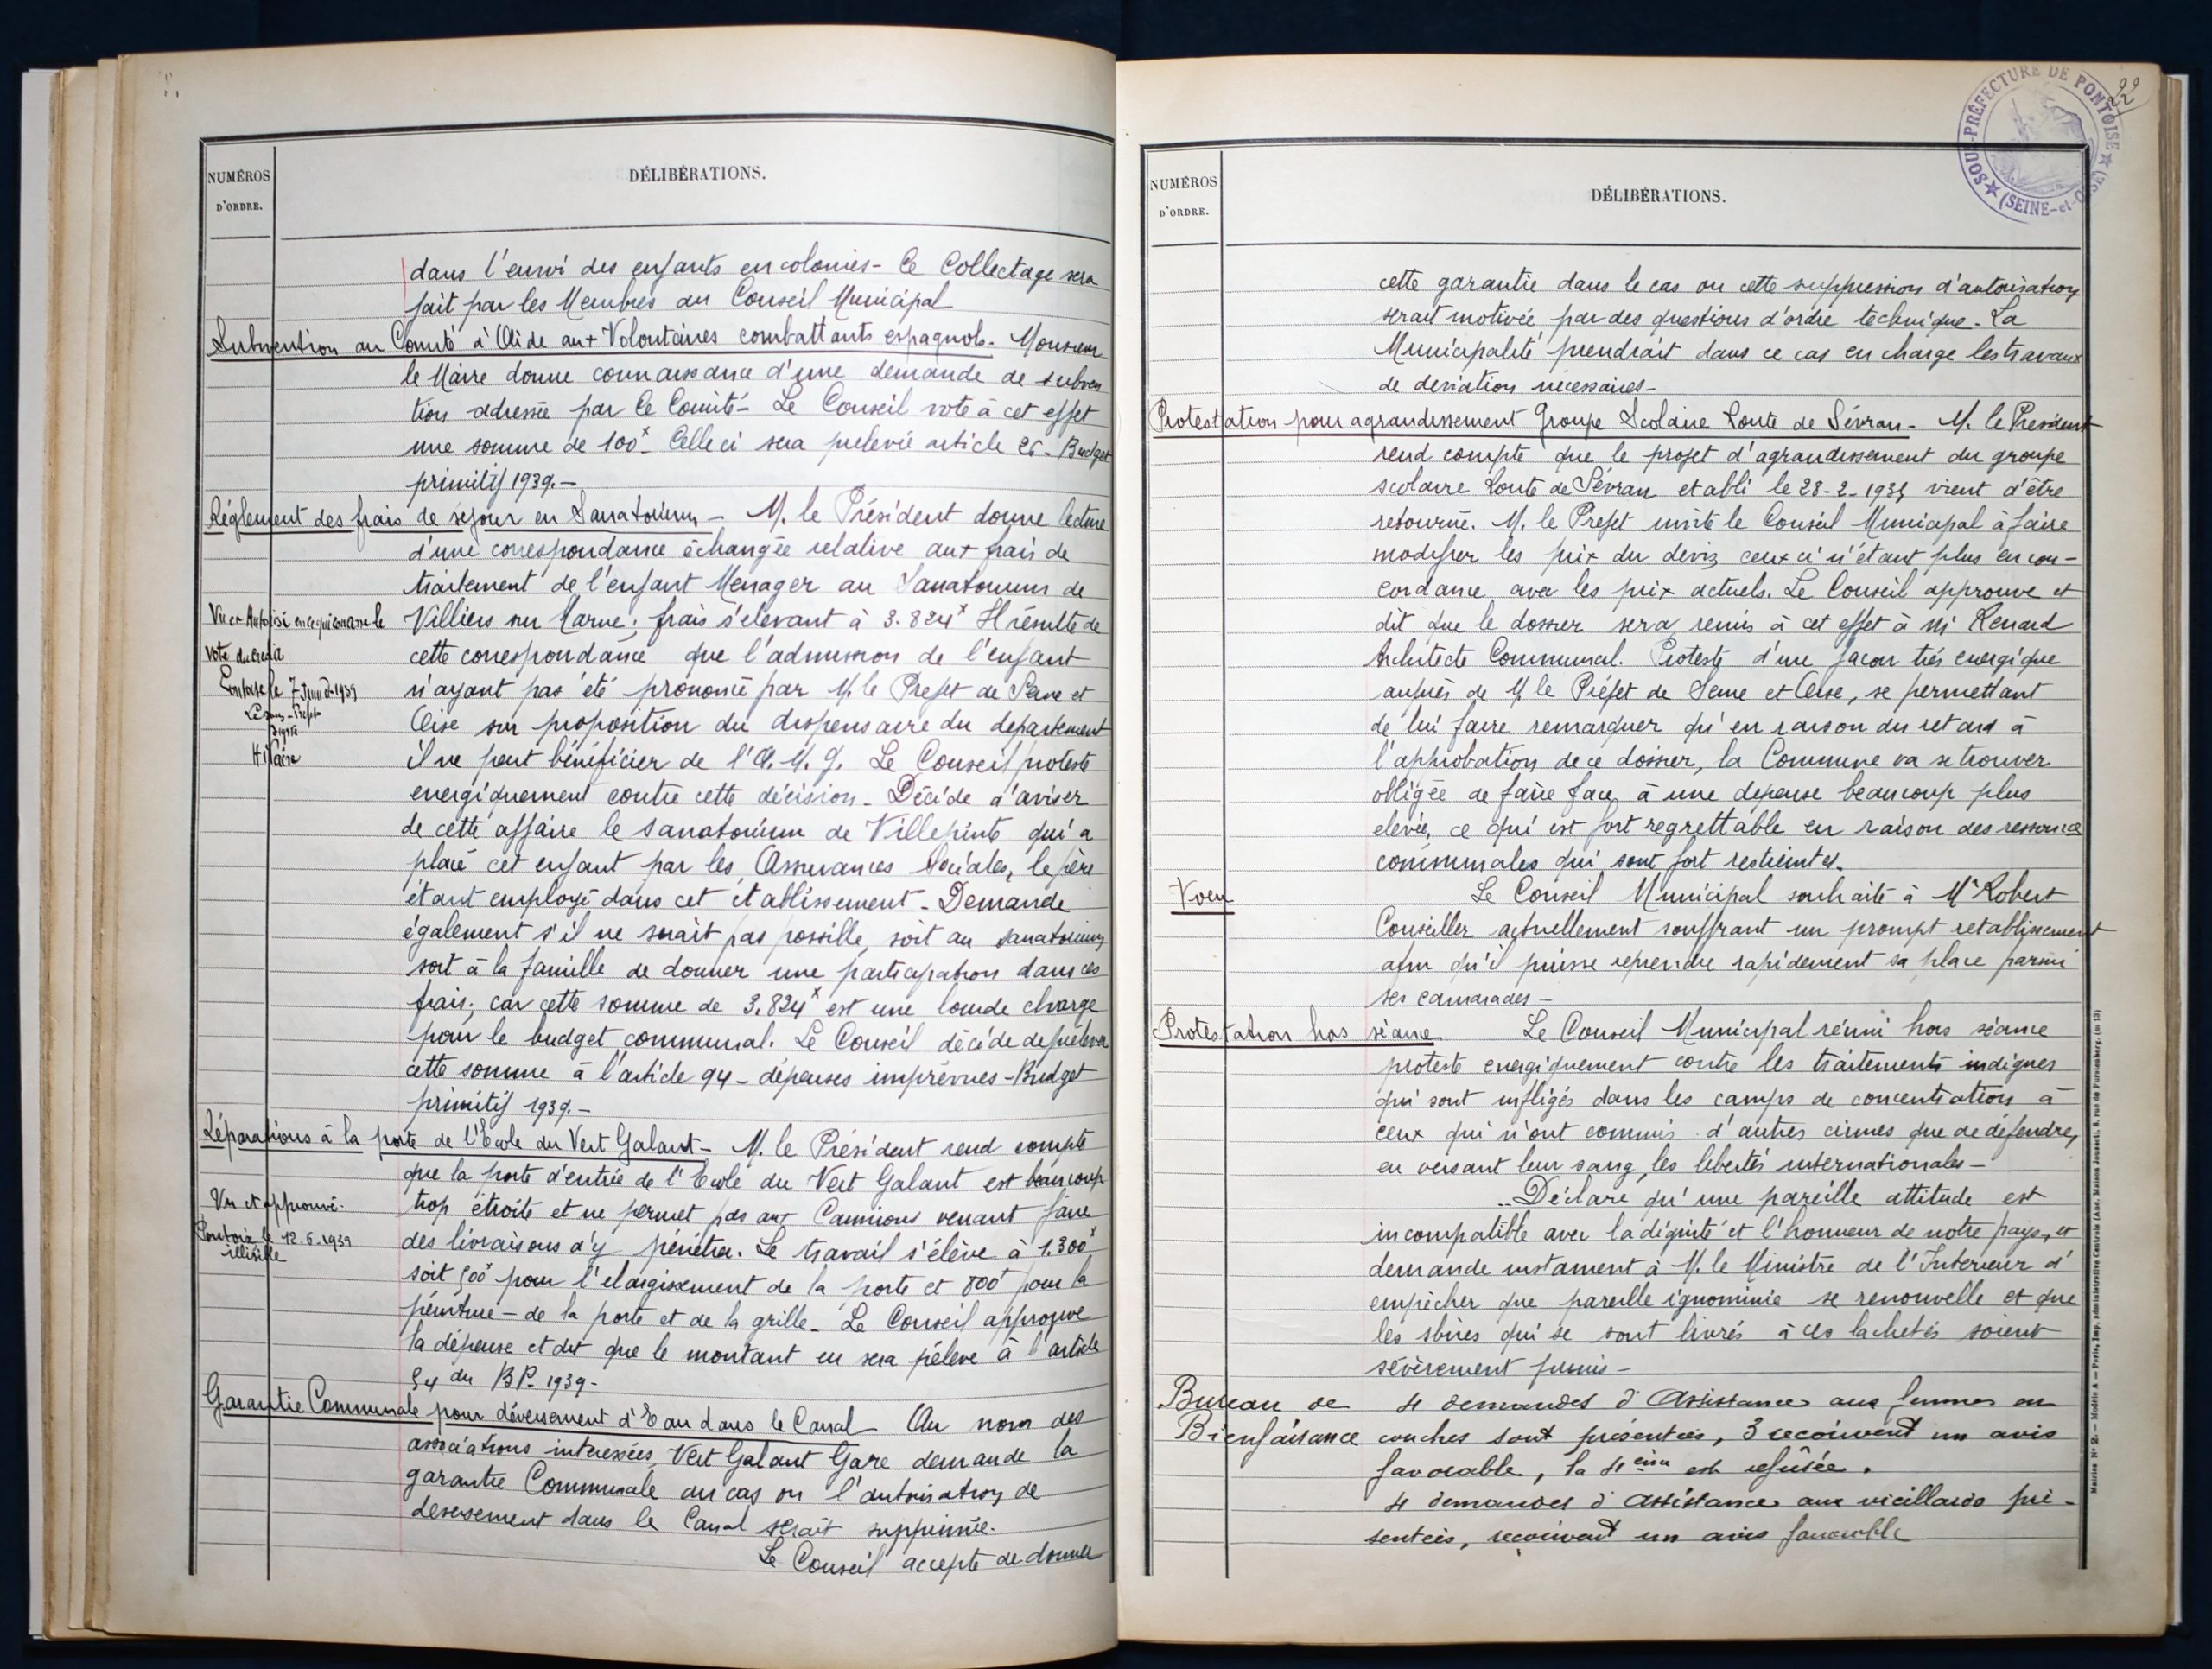 NUMÉROS
D'ORDRE.
DÉLIBÉRATIONS.
dans l'envoi des enfants en colonies - Ce Collectage sera
fait par les Membres du Conseil Municipal
Subvention au Comité d'Aide aux Volontaires combattants espagnols. Monsieur
le Maire donne connaissance d'une demande de subven
tion adressée par le Comité - Le Conseil vote à cet effet
une somme de 100ᶠ. Celle ci sera prelevée article 26. Budget
primitif 1939. -
Réglement des frais de sejour en Sanatorium - M. le Président donne lecture
d'une correspondance échangée relative aux frais de
traitement de l'enfant Menager au Sanatorium de
Villiers sur Marne ; frais s'elevant à 3.824ᶠ Il résulte de
cette correspondance que l'admission de l'enfant
n'ayant pas été prononcé par M. le Prefet de Seine et
Oise sur proposition du dispensaire du departement
il ne peut bénéficier de l'A. M. G. Le Conseil proteste
energiquement contre cette décision. Décide d'aviser
de cette affaire le sanatorium de Villepinte qui a
placé cet enfant par les Assurances Sociales, le père
étant employé dans cet établissement. Demande
également s'il ne serait pas possible, soit au sanatorium
soit à la famille de donner une participation dans ces
frais ; car cette somme de 3.824ᶠ est une lourde charge
pour le budget communal. Le Conseil décide de prélever
cette somme à l'article 94 - dépenses imprévues - Budget
primitif 1939. -
Vu et Autorisé en ce qui concerne le
vote du credit
Pontoise le 7 Juin 1939
Le Sous-Préfet
Signé
Hilaire
Réparations à la porte de l'Ecole du Vert Galant - M. le Président rend compte
que la porte d'entrée de l'Ecole du Vert Galant est beaucoup
trop étroite et ne permet pas aux Camions venant faire
des livraisons d'y pénétrer. Le travail s'élève à 1.300ᶠ
soit 500ᶠ pour l'elargissement de la porte et 800ᶠ pour la
peinture - de la porte et de la grille. Le Conseil approuve
la dépense et dit que le montant en sera préleve à l'article
54 du BP. 1939 -
Vu et approuvé.
Pontoise le 12.6.1939
illisible
Garantie Communale pour déversement d'Eau dans le Canal - Au nom des
associations interessées, Vert Galant Gare demande la
garantie Communale au cas ou l'autorisation de
deversement dans le Canal serait supprimée.
Le Conseil accepte de donner
22
SOUS-PRÉFECTURE DE PONTOISE
(SEINE-et-OISE)
NUMÉROS
D'ORDRE.
DÉLIBÉRATIONS.
cette garantie dans le cas ou cette suppression d'autorisation
serait motivée par des questions d'ordre technique. La
Municipalité prendrait dans ce cas en charge les travaux
de deviation necessaires -
Protestation pour agrandissement Groupe Scolaire Route de Sévran - M. le President
rend compte que le projet d'agrandissement du groupe
scolaire Route de Sévran etabli le 28-2-1939 vient d'être
retourné. M. le Prefet invite le Conseil Municipal à faire
modifier les prix du devis ceux ci n'étant plus en con-
cordance avec les prix actuels. Le Conseil approuve et
dit que le dossier sera remis à cet effet à Mʳ Renard
Architecte Communal. Proteste d'une facon trés energique
auprès de M. le Préfet de Seine et Oise, se permettant
de lui faire remarquer qu'en raison du retard à
l'approbation de ce dossier, la Commune va se trouver
obligée de faire face à une depense beaucoup plus
elevée, ce qui est fort regrettable en raison des ressources
communales qui sont fort restreintes.
Voeu
Le Conseil Municipal souhaite à Mʳ Robert
Conseiller actuellement souffrant un prompt retablissement
afin qu'il puisse reprendre rapidement sa place parmi
ses camarades -
Protestation hors séance Le Conseil Municipal réuni hors séance
proteste energiquement contre les traitements indignes
qui sont infligés dans les camps de concentration à
ceux qui n'ont commis d'autres crimes que de défendre,
en versant leur sang, les libertés internationales -
.. Déclare qu'une pareille attitude est
incompatible avec la dignité et l'honneur de notre pays, et
demande instament à M. le Ministre de l'Interieur d'
empêcher que pareille ignominie se renouvelle et que
les sbires qui se sont livrés à ces lachetés soient
sévèrement punis -
Bureau de
Bienfaisance
4 demandes d'Assistance aux femmes en
couches sont présentées, 3 recoivent un avis
favorable, la 4 eme est refusée.
4 demandes d'Assistance aux vieillards pré-
sentées, recoivent un avis favorable
Mairies Nº 2. - Modèle A - Paris, Imp. administrative Centrale (Anc. Maison Jousset), 8, rue de Furstenberg. (m 13)